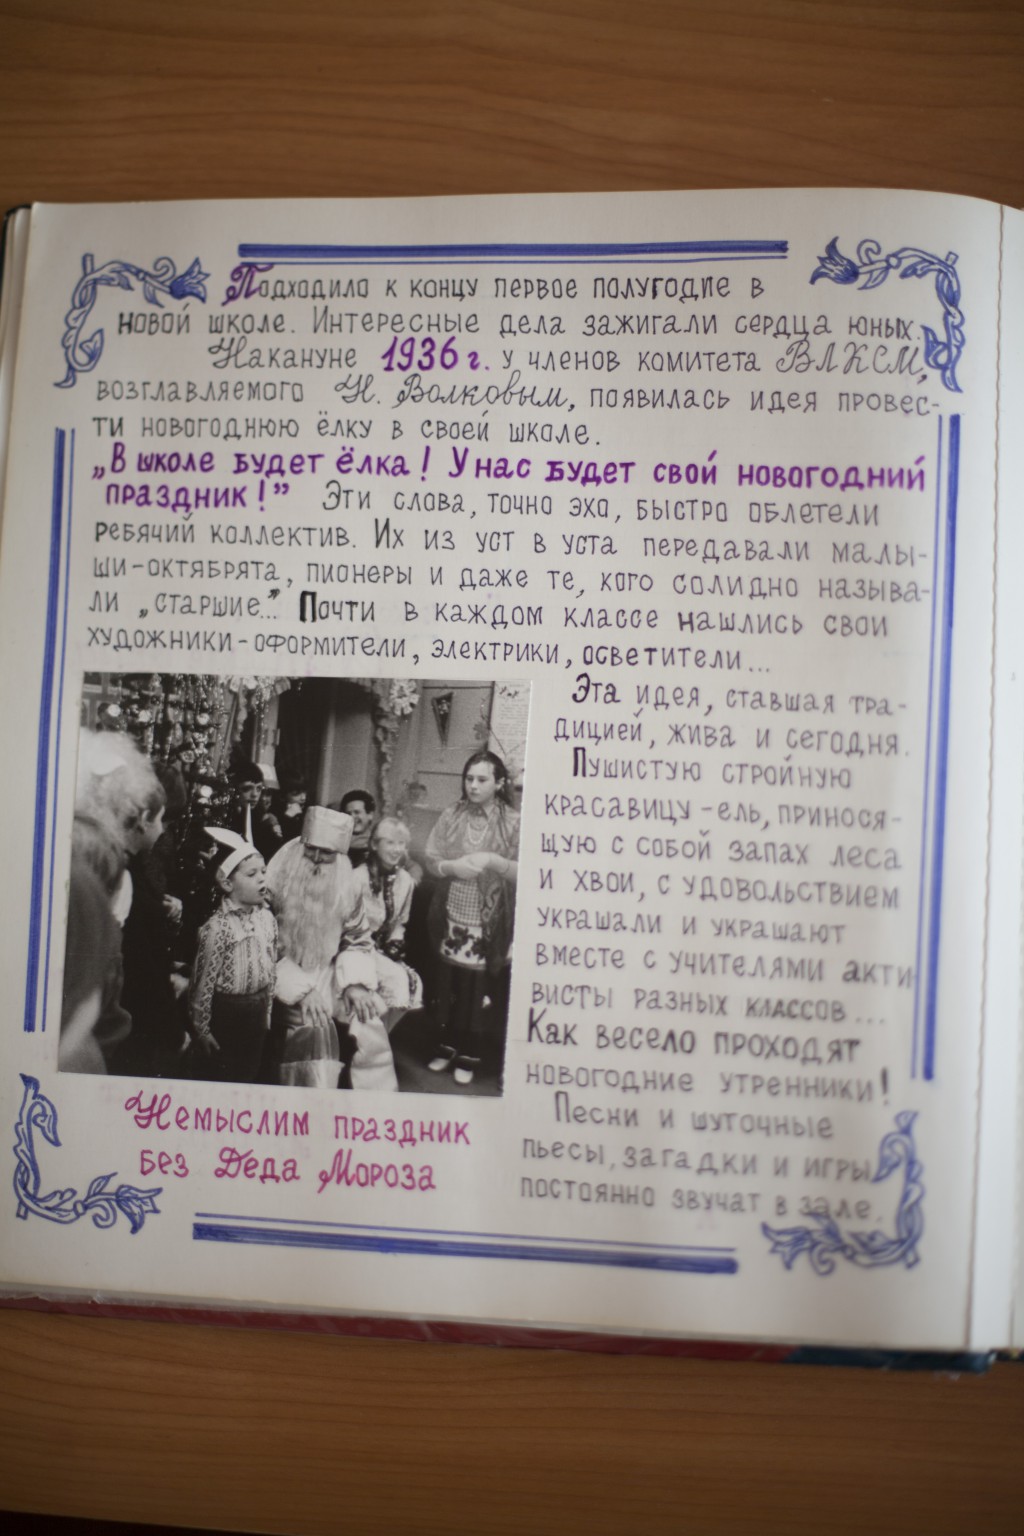 Подходило к концу первое полугодие в
новой школе. Интересные дела зажигали сердца юных.
Накануне 1936 г. у членов комитета ВЛКСМ,
возглавляемого Н. Волковым, появилась идея провес-
ти новогоднюю ёлку в своей школе.
„В школе будет ёлка! У нас будет свой новогодний
праздник!” Эти слова, точно эхо, быстро облетели
ребячий коллектив. Их из уст в уста передавали малы-
ши-октябрята, пионеры и даже те, кого солидно называ-
ли „старшие...” Почти в каждом классе нашлись свои
художники-оформители, электрики, осветители...
Эта идея, ставшая тра-
дицией, жива и сегодня.
Пушистую стройную
красавицу-ель, принося-
щую с собой запах леса
и хвои, с удовольствием
украшали и украшают
вместе с учителями акти
висты разных классов...
Как весело проходят
новогодние утренники!
Песни и шуточные
пьесы, загадки и игры
постоянно звучат в зале.
Немыслим праздник
без Деда Мороза